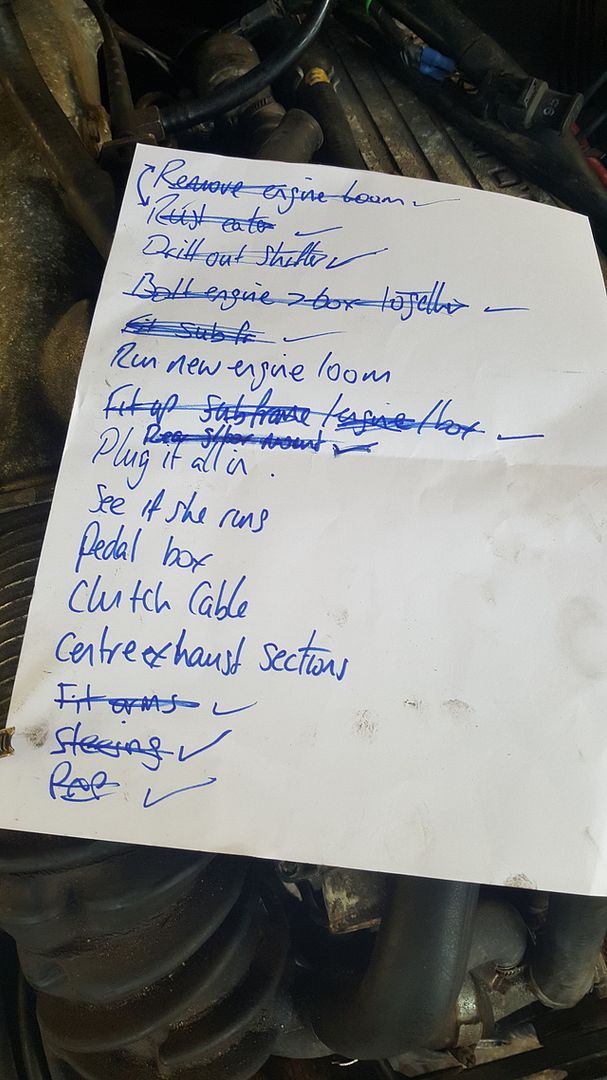 Remove engine loom
Rust eater
Drill out starter
Bolt engine > box together
Fit subfr
Run new engine loom
Fit up subframe / engine / box
Rear g/box mount
Plug it all in.
See if she runs
Pedal box
Clutch Cable
Centre exhaust sections
Fit arms
Steering